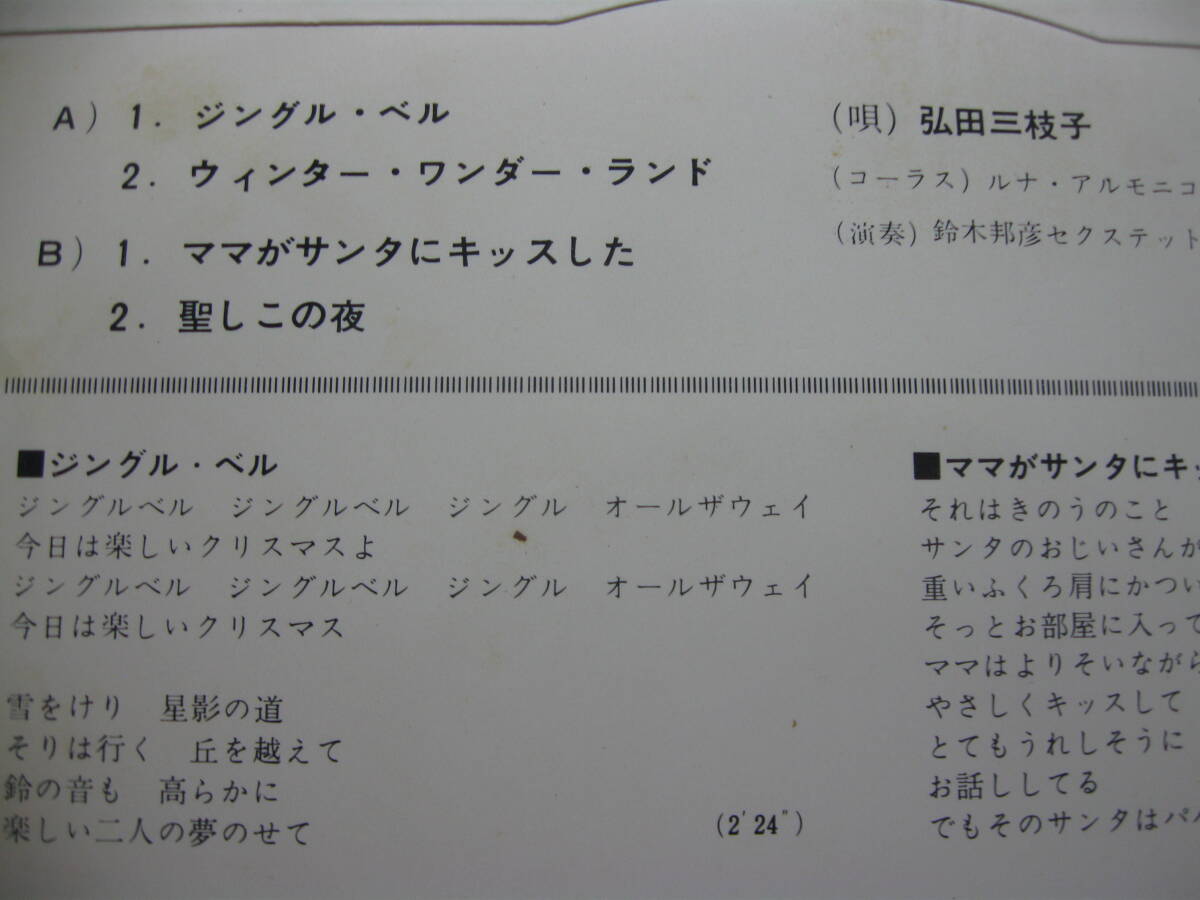 A) 1. ジングル・ベル
2. ウィンター・ワンダー・ランド
B) 1. ママがサンタにキッスした
2. 聖しこの夜
(唄) 弘田三枝子
(コーラス) ルナ・アルモニコ
(演奏) 鈴木邦彦セクステット
■ジングル・ベル
ジングルベル ジングルベル ジングル オールザウェイ
今日は楽しいクリスマスよ
ジングルベル ジングルベル ジングル オールザウェイ
今日は楽しいクリスマス
雪をけり 星影の道
そりは行く 丘を越えて
鈴の音も 高らかに
楽しい二人の夢のせて
(2'24")
■ママがサンタにキッ
それはきのうのこと
サンタのおじいさんが
重いふくろ肩にかつい
そっとお部屋に入って
ママはよりそいながら
やさしくキッスして
とてもうれしそうに
お話ししてる
でもそのサンタはパパ